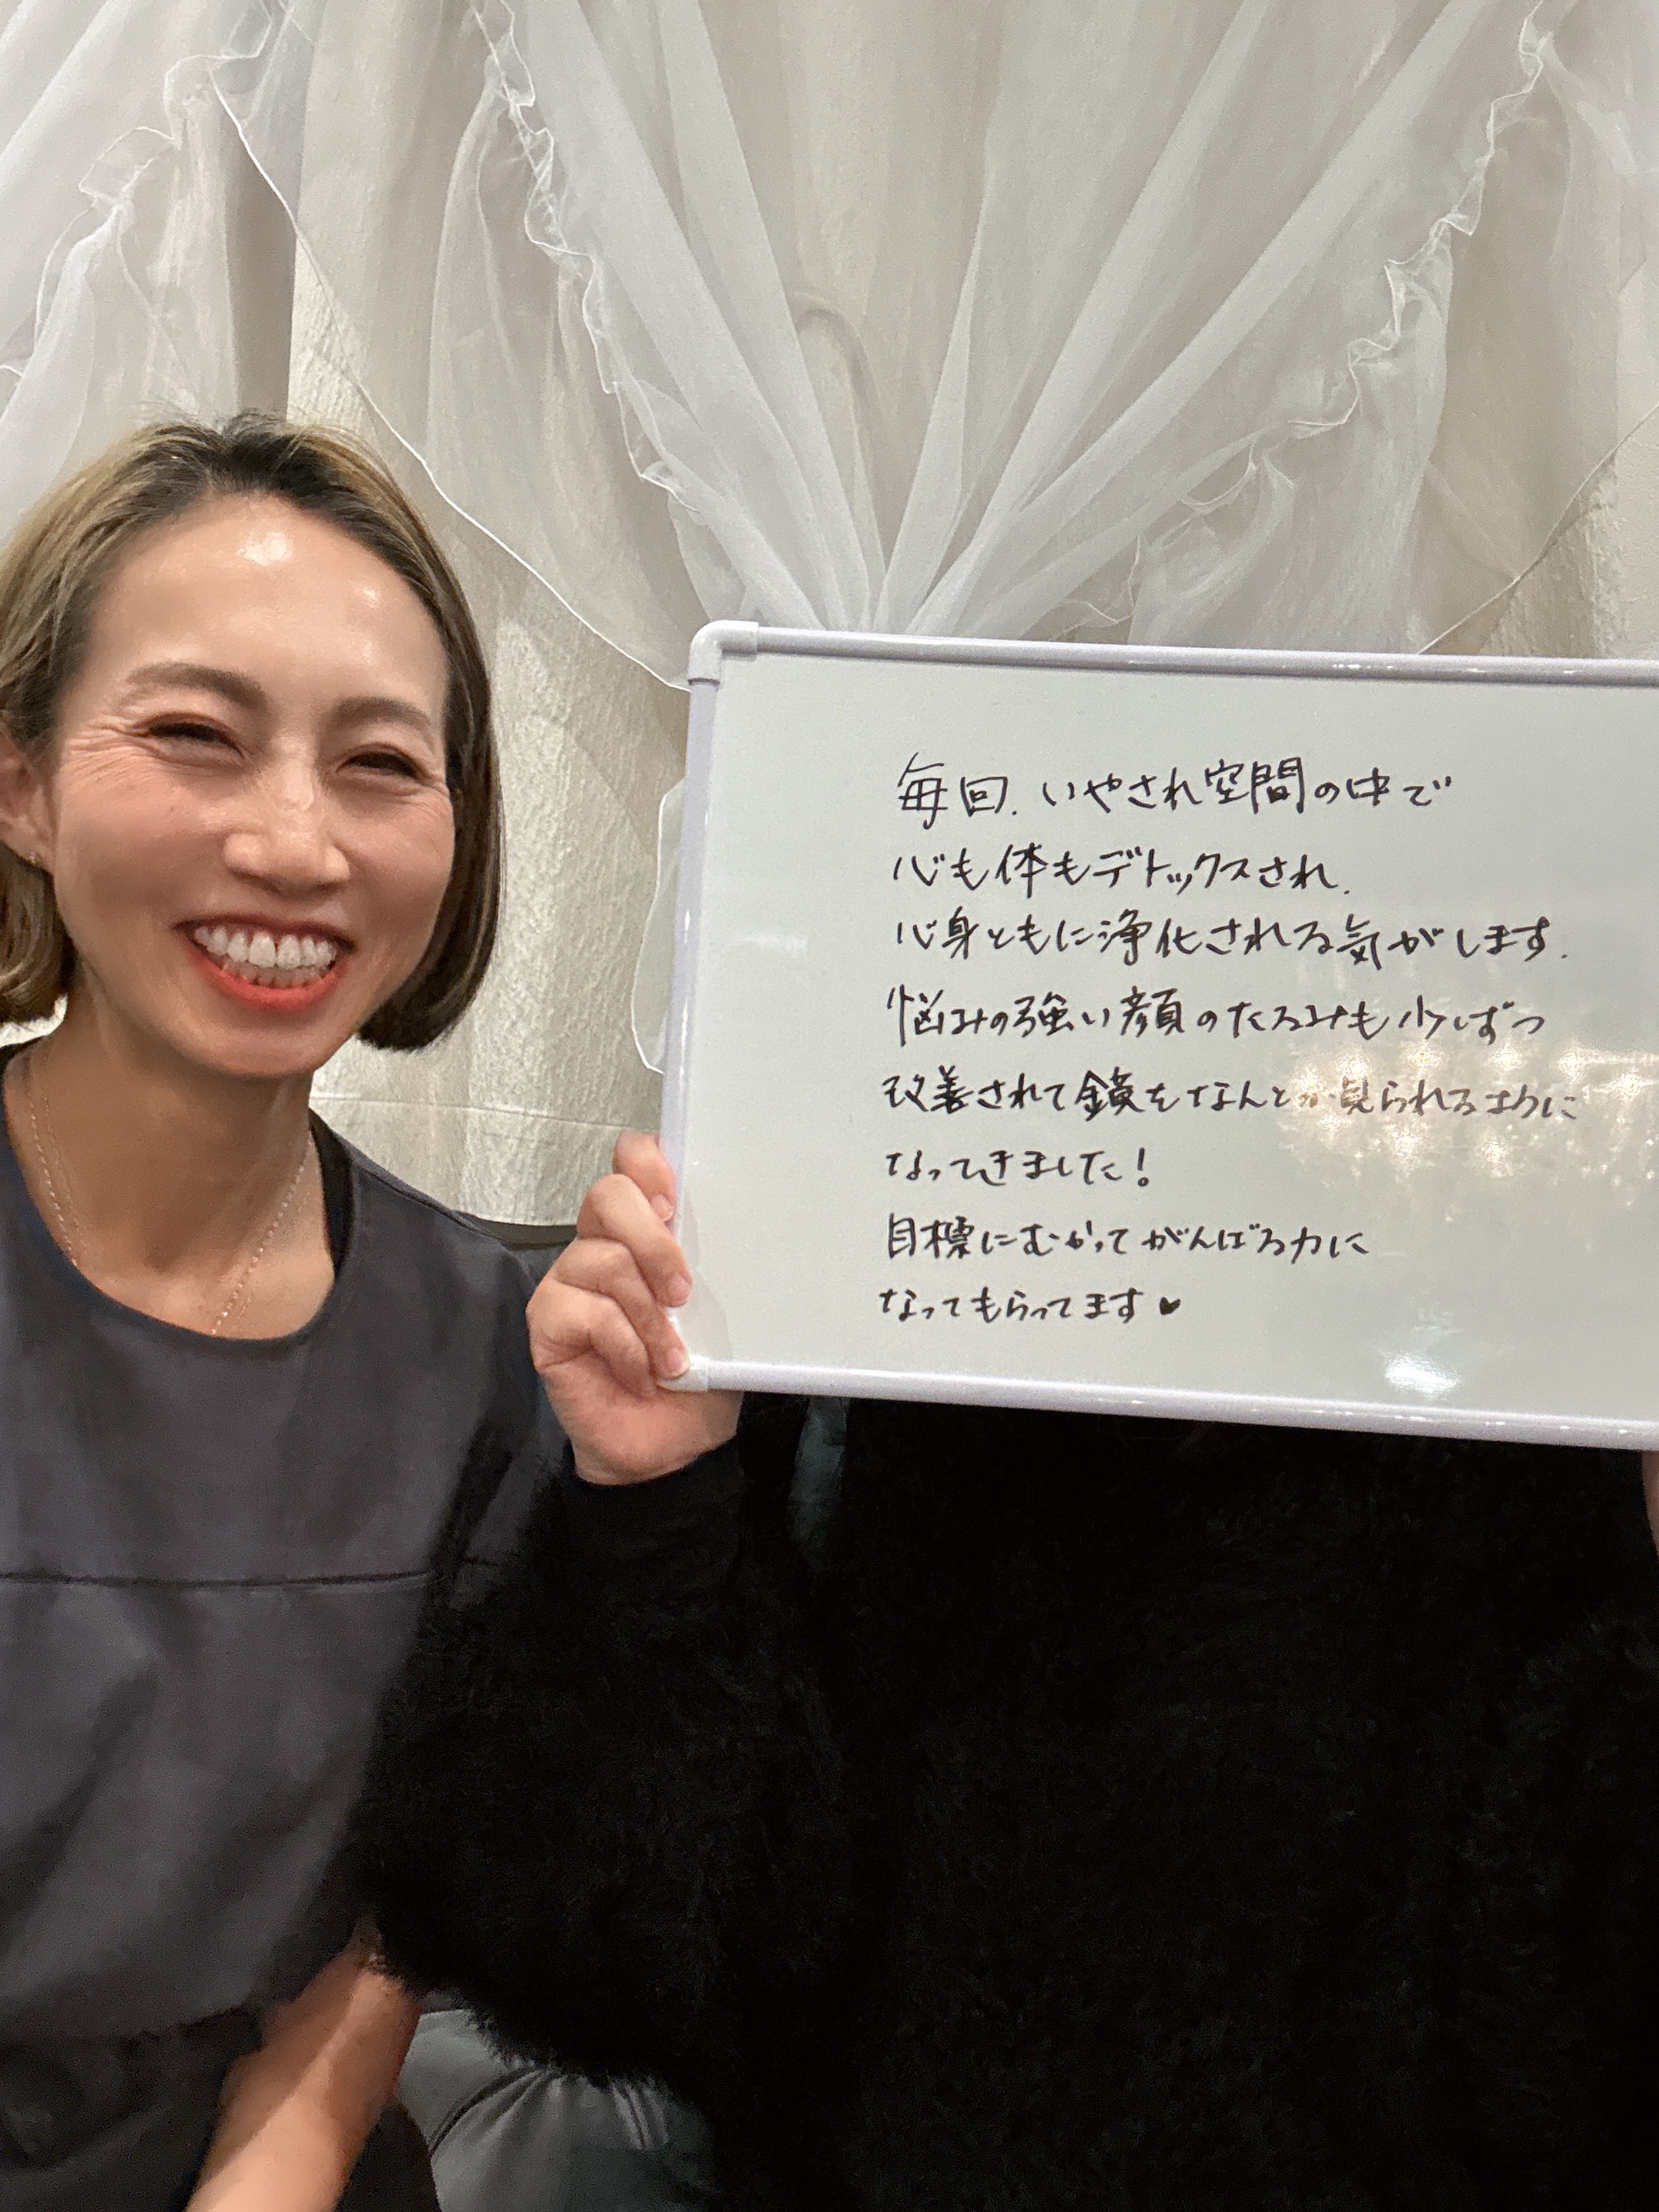 毎回、いやされ空間の中で
心も体もデトックスされ、
心身ともに浄化される気がします。
悩みの強い顔のたるみも少しずつ
改善されて鏡をなんとか見られるように
なってきました！
目標にむかってがんばる力に
なってもらってます♥